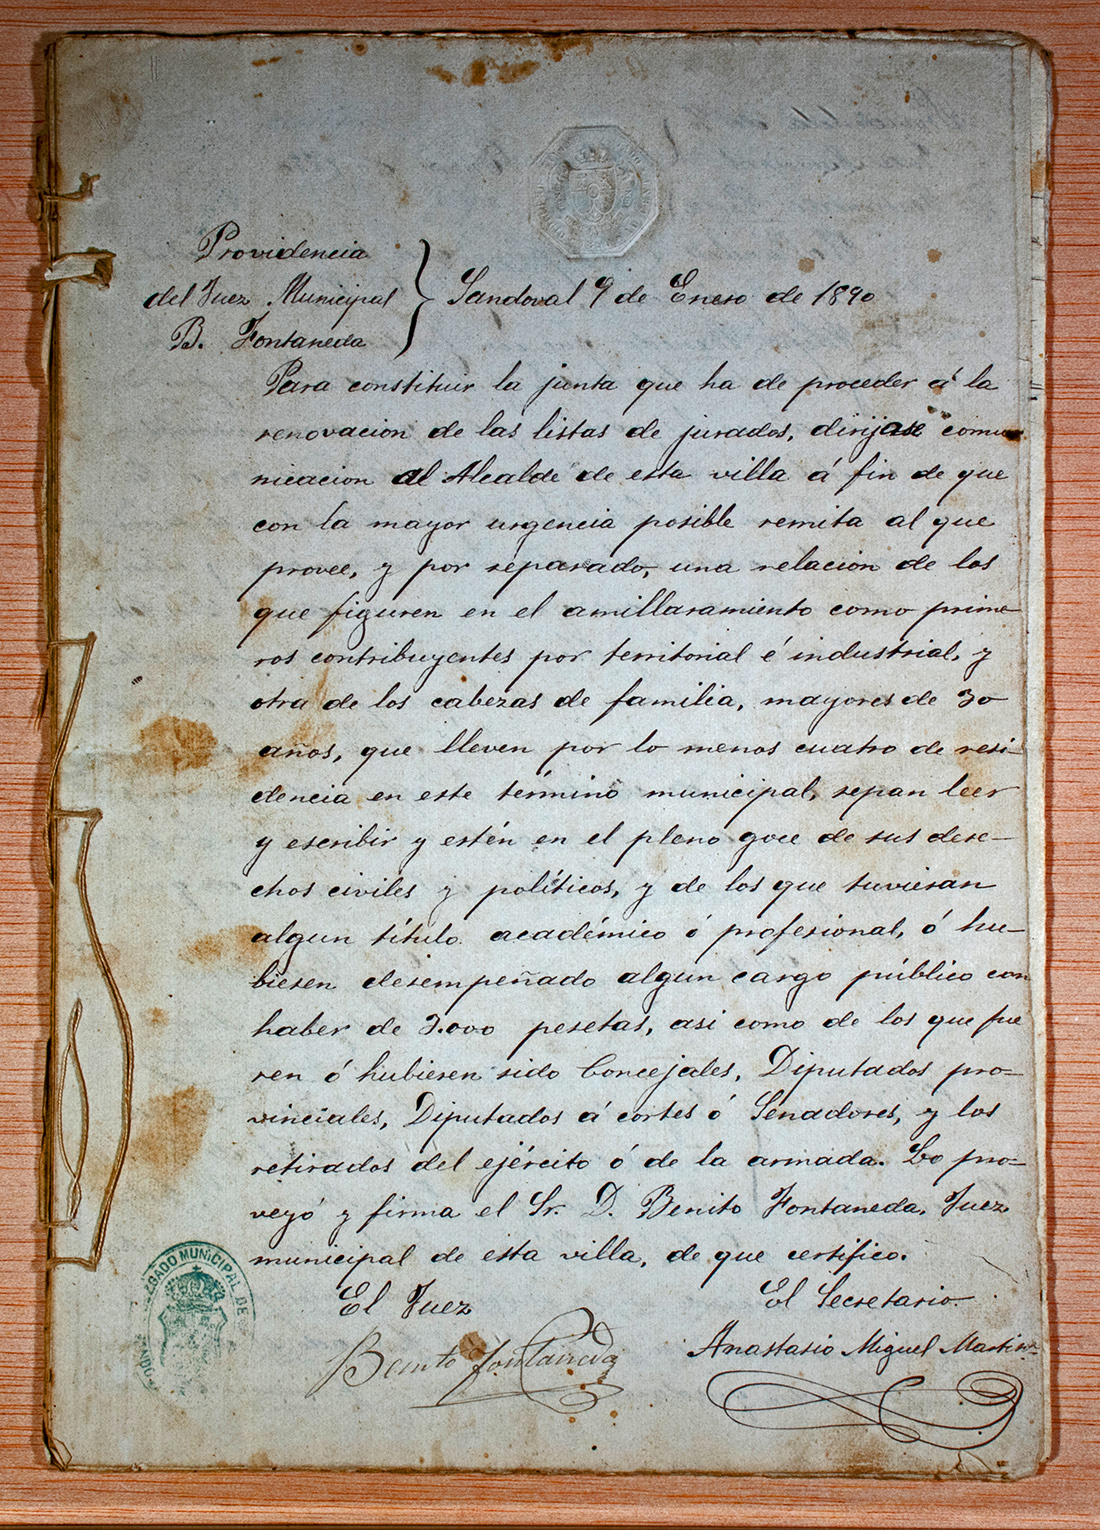 Providencia
del Juez Municipal
B. Fontaneda
Sandoval 9 de Enero de 1890
Para constituir la junta que ha de proceder á la
renovacion de las listas de jurados, dirijase comu
nicacion al Alcalde de esta villa á fin de que
con la mayor urgencia posible remita al que
provee, y por separado, una relacion de los
que figuren en el amillaramiento como prime
ros contribuyentes por territorial é industrial, y
otra de los cabezas de familia, mayores de 30
años, que lleven por lo menos cuatro de resi-
dencia en este término municipal, sepan leer
y escribir y estén en el pleno goce de sus dere-
chos civiles y políticos, y de los que tuvieran
algun título académico ó profesional, ó hu-
biesen desempeñado algun cargo público con
haber de 3.000 pesetas, asi como de los que fue
ren ó hubiesen sido Concejales, Diputados pro-
vinciales, Diputados á cortes ó Senadores, y los
retirados del ejército ó de la armada. Lo pro-
veyó y firma el Sr. D. Benito Fontaneda, Juez
municipal de esta villa, de que certifico.
El Juez
El Secretario
Benito Fontaneda
Anastasio Miguel Martin
JUZGADO MUNICIPAL DE